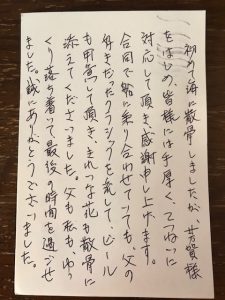 初めて海に散骨しましたが、芳賀様
をはじめ、皆様には手厚く、ていねいに
対応して頂き、感謝申し上げます。
合同で船に乗り合わせていても、父の
好きだったクラシックを流して、ビール
も用意して頂き、きれいな花も散骨に
添えてくださいました。父も私も、ゆっ
くり落ち着いて最後の時間を過ごせ
ました。誠にありがとうございました。